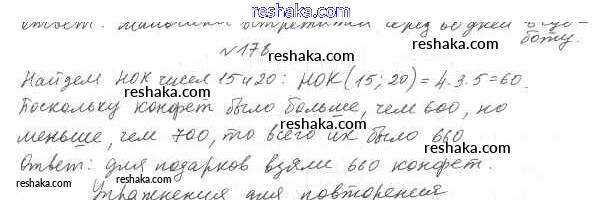 reshaka.com
Ответ: мальчики встретятся через 60 дней в суб-
боту.
№178
reshaka.com
Найдем НОК чисел 15 и 20: НОК(15; 20) = 4·3·5 = 60.
reshaka.com reshaka.com
Поскольку конфет было больше, чем 600, но
меньше, чем 700, то всего их было 660
reshaka.com reshaka.com
Ответ: для подарков взяли 660 конфет.
reshaka.com reshaka.com
Упражнения для повторения